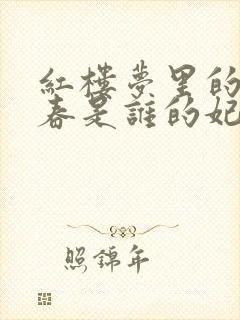 紅樓夢里的
春是誰的妃
照錦年